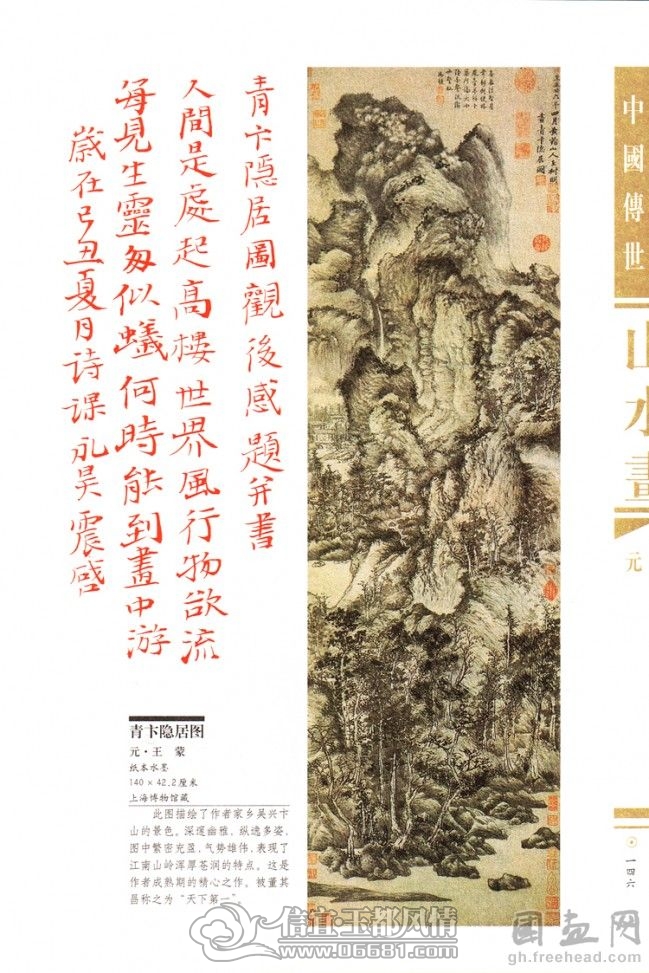 中國傳世
山水畫
元
一四六
四月黄鶴山人王叔明
畫青卞隱居圖
青卞隐居圖觀後感題并書
人間是處起高樓世界風行物欲流
每見生靈匆似蟻何時能到畫中游
歲在己丑夏月诗課
青卞隐居图
元·王 蒙
纸本水墨
140×42.2厘米
上海博物馆藏
此图描绘了作者家乡吴兴卞
山的景色。深邃幽雅，纵逸多姿，
图中繁密充盈，气势雄伟，表现了
江南山岭浑厚苍润的特点。这是
作者成熟期的精心之作。被董其
昌称之为“天下第一”。
信宜·玉都风情
www.06681.com
国画网
gh.freehead.com